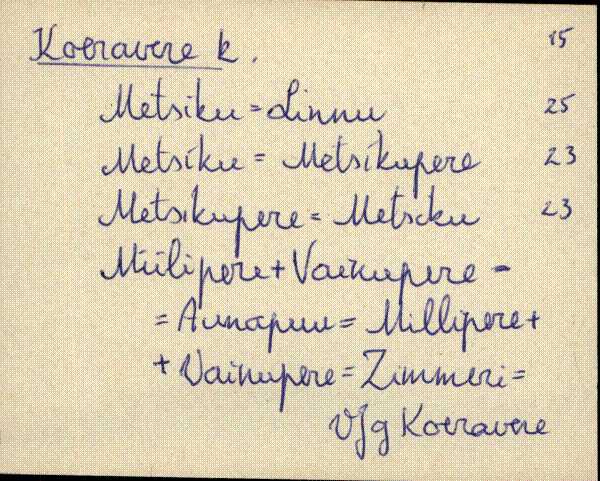 Koeravere k. 15
Metsiku = Linnu 25
Metsiku = Metsikupere 23
Metsikupere = Metsiku 23
Miilipere + Vainupere -
= Aunapuu = Millipere +
+ Vainupere = Zimmeri =
Vfg Koeravere